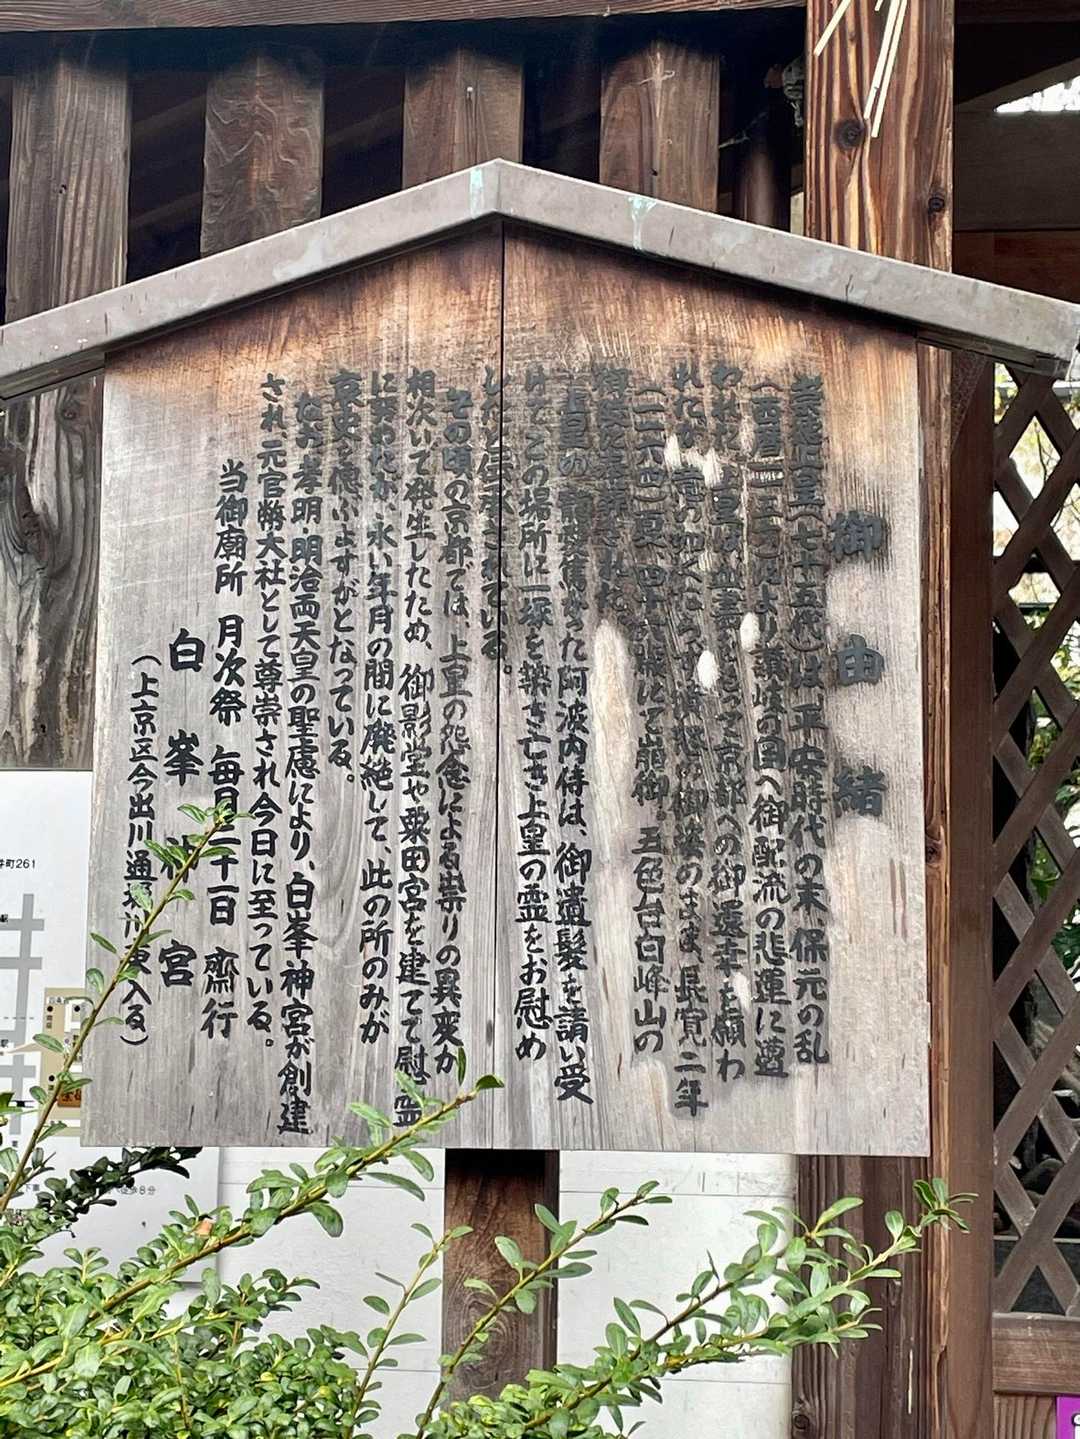 御由緒
崇徳上皇(七十五代)は、平安時代の末、保元の乱
(西暦一一五六)より讃岐の国へ御配流の悲運に遭
われた。上皇は血書をもって京都への御還幸を願わ
れたが、意の如くならず、痛恨の御姿のまま、長寛二年
(一一六四)夏、四十六歳にて崩御。五色台白峰山の
御陵に葬祀された。
上皇の寵愛篤かった阿波内侍は、御遺髪を請い受
けてこの場所に一塚を築き亡き上皇の霊をお慰め
したと伝承されている。
その頃の京都では、上皇の怨念による祟りの異変が
相次いで発生したため、御影堂や粟田宮を建てて慰霊
に努めたが、永い年月の間に廃絶して、此の所のみが
哀史を偲ぶよすがとなっている。
なお孝明・明治両天皇の聖慮により、白峯神宮が創建
され、元官幣大社として尊崇され今日に至っている。
当御廟所 月次祭 毎月二十一日 斎行
白峯神宮
(上京区今出川通堀川東入る)
町261
徒歩8分